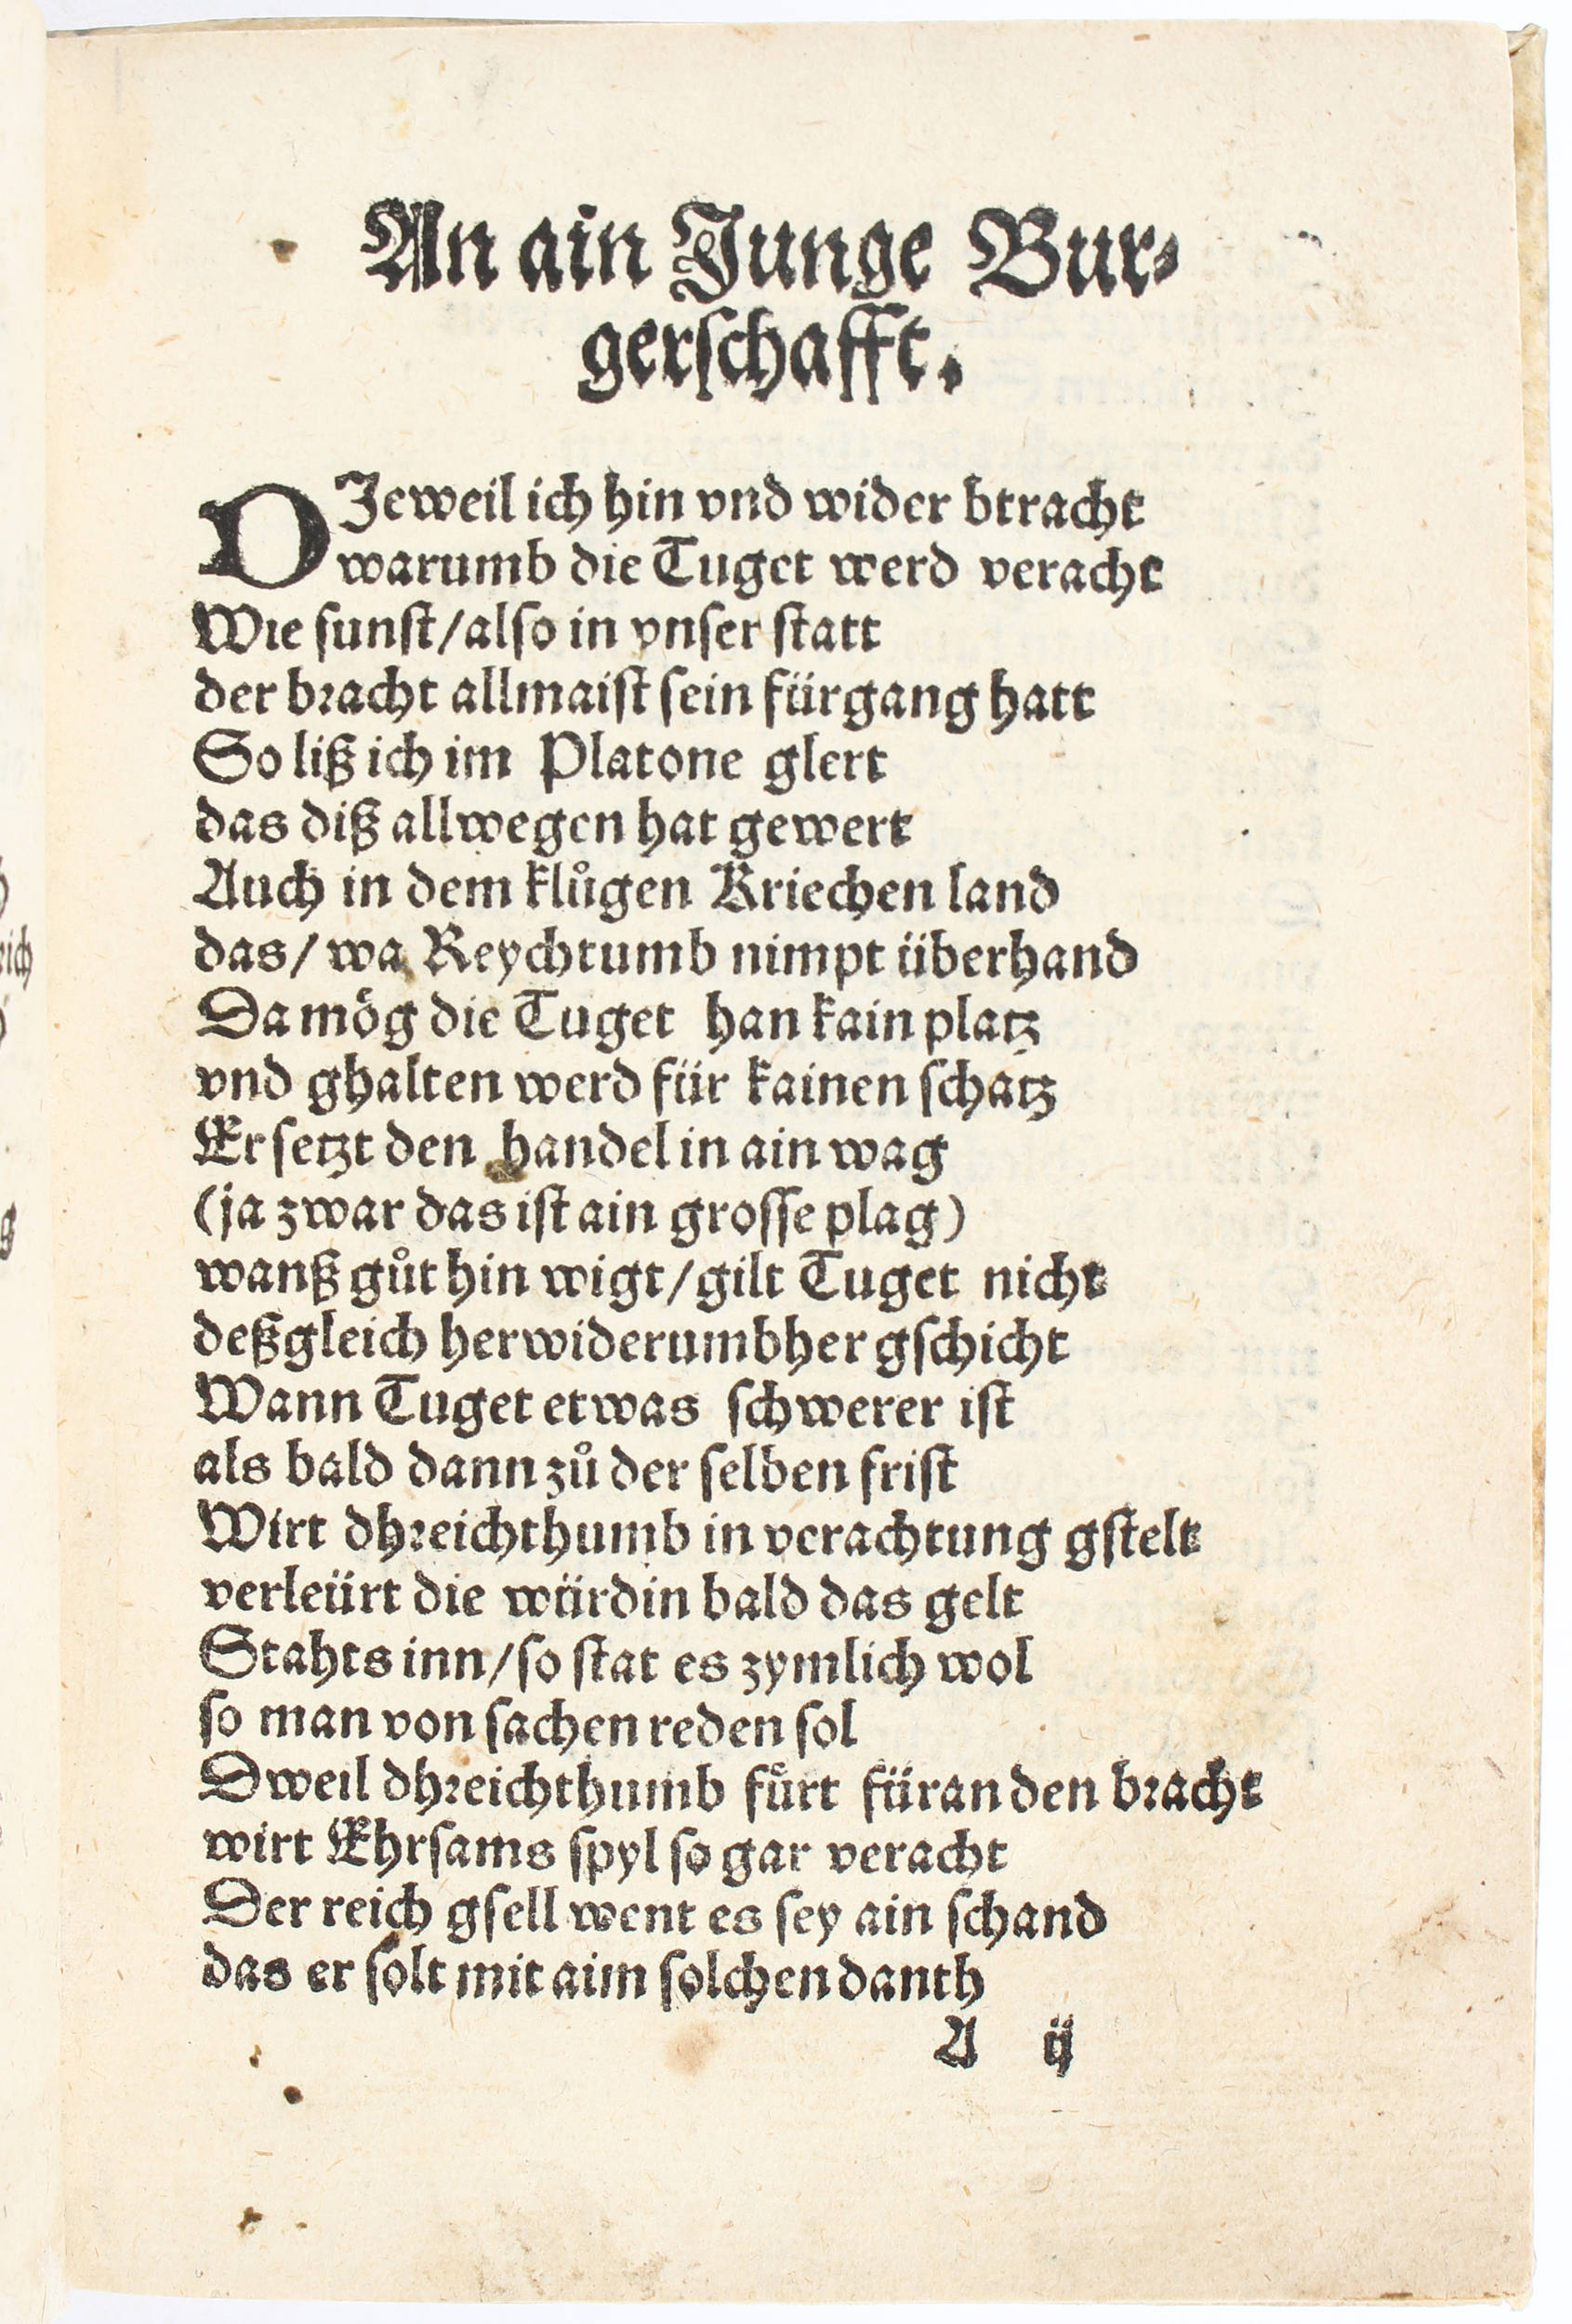 An ain Junge Bur⸗
gerſchafft.
DJeweil ich hin vnd wider btracht
warumb die Tuget werd veracht
Wie ſunſt/alſo in vnſer ſtatt
der bꝛacht allmaiſt ſein fürgang hatt
So liß ich im Platone glert
das diß allwegen hat gewert
Auch in dem klůgen Kriechen land
das/ wa Reychtumb nimpt überhand
Da mög die Tuget han kain platz
vnd ghalten werd für kainen ſchatz
Er ſetzt den handel in ain wag
(ja zwar das iſt ain groſſe plag)
wanß gůt hin wigt/gilt Tuget nicht
deßgleich herwiderumbher gſchicht
Wann Tuget etwas ſchwerer iſt
als bald dann zů der ſelben friſt
Wirt dhꝛeichthumb in verachtung gſtelt
verleürt die würdin bald das gelt
Stahts inn/ſo ſtat es zymlich wol
ſo man von ſachen reden ſol
Dweil dhꝛeichthumb fürt füran den bꝛacht
wirt Ehrſams ſpyl ſo gar veracht
Der reich gſell went es ſey ain ſchand
das er ſolt mit aim ſolchen danth
A ij